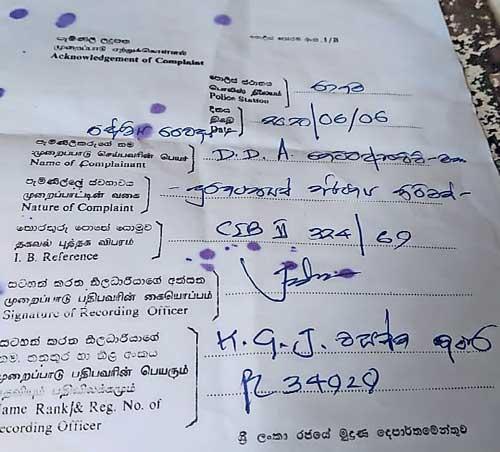 පැමිණිලි ලදුපත
முறைப்பாடு ஏற்றுக்கொள்ளல்
Acknowledgement of Complaint
පොලිස් ස්ථානය
பொலிஸ் நிலையம்
Police Station
දිනය
திகதி
Date
2020/06/06
පැමිණිලිකරුගේ නම
முறைப்பாடு செய்பவரின் பெயர்
Name of Complainant
D. D. A.
පැමිණිල්ලේ ස්වභාවය
முறைப்பாட்டின் வகை
Nature of Complaint
තොරතුරු පොතේ යොමුව
தகவல் புத்தக விபரம்
I. B. Reference
CIB II 324/69
සටහන් කරන නිලධාරියාගේ අත්සන
முறைப்பாடு பதிபவரின் கையொப்பம்
Signature of Recording Officer
සටහන් කරන නිලධාරියාගේ
නම, තනතුර හා නිල අංකය
முறைப்பாடு பதிபவரின் பெயரும்
Name Rank & Reg. No. of
Recording Officer
K. G. J. වසන්ත කුමාර
PC 34928
ශ්‍රී ලංකා රජයේ මුද්‍රණ දෙපාර්තමේන්තුව